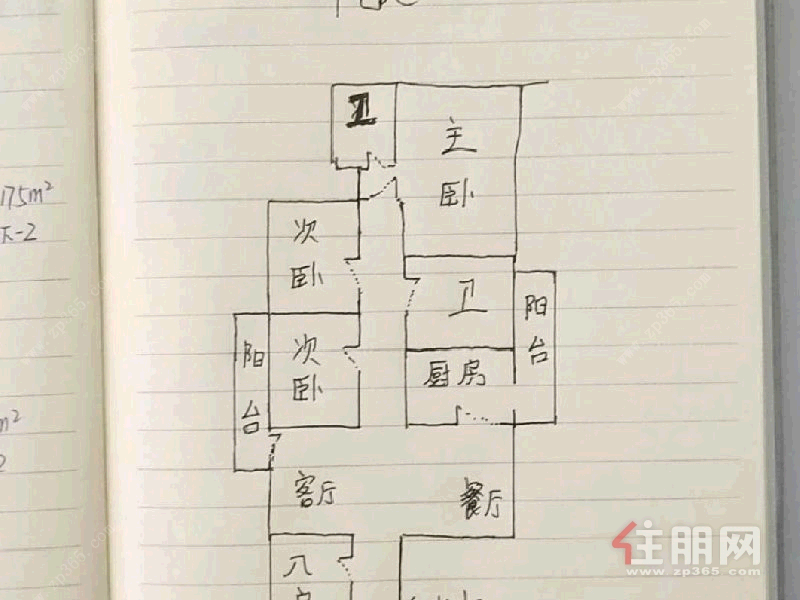 卫
主
卧
175m²
次
卧
卫
阳
台
阳
台
次
卧
厨房
m²
客厅
餐厅
住朋网
www.zp365.com